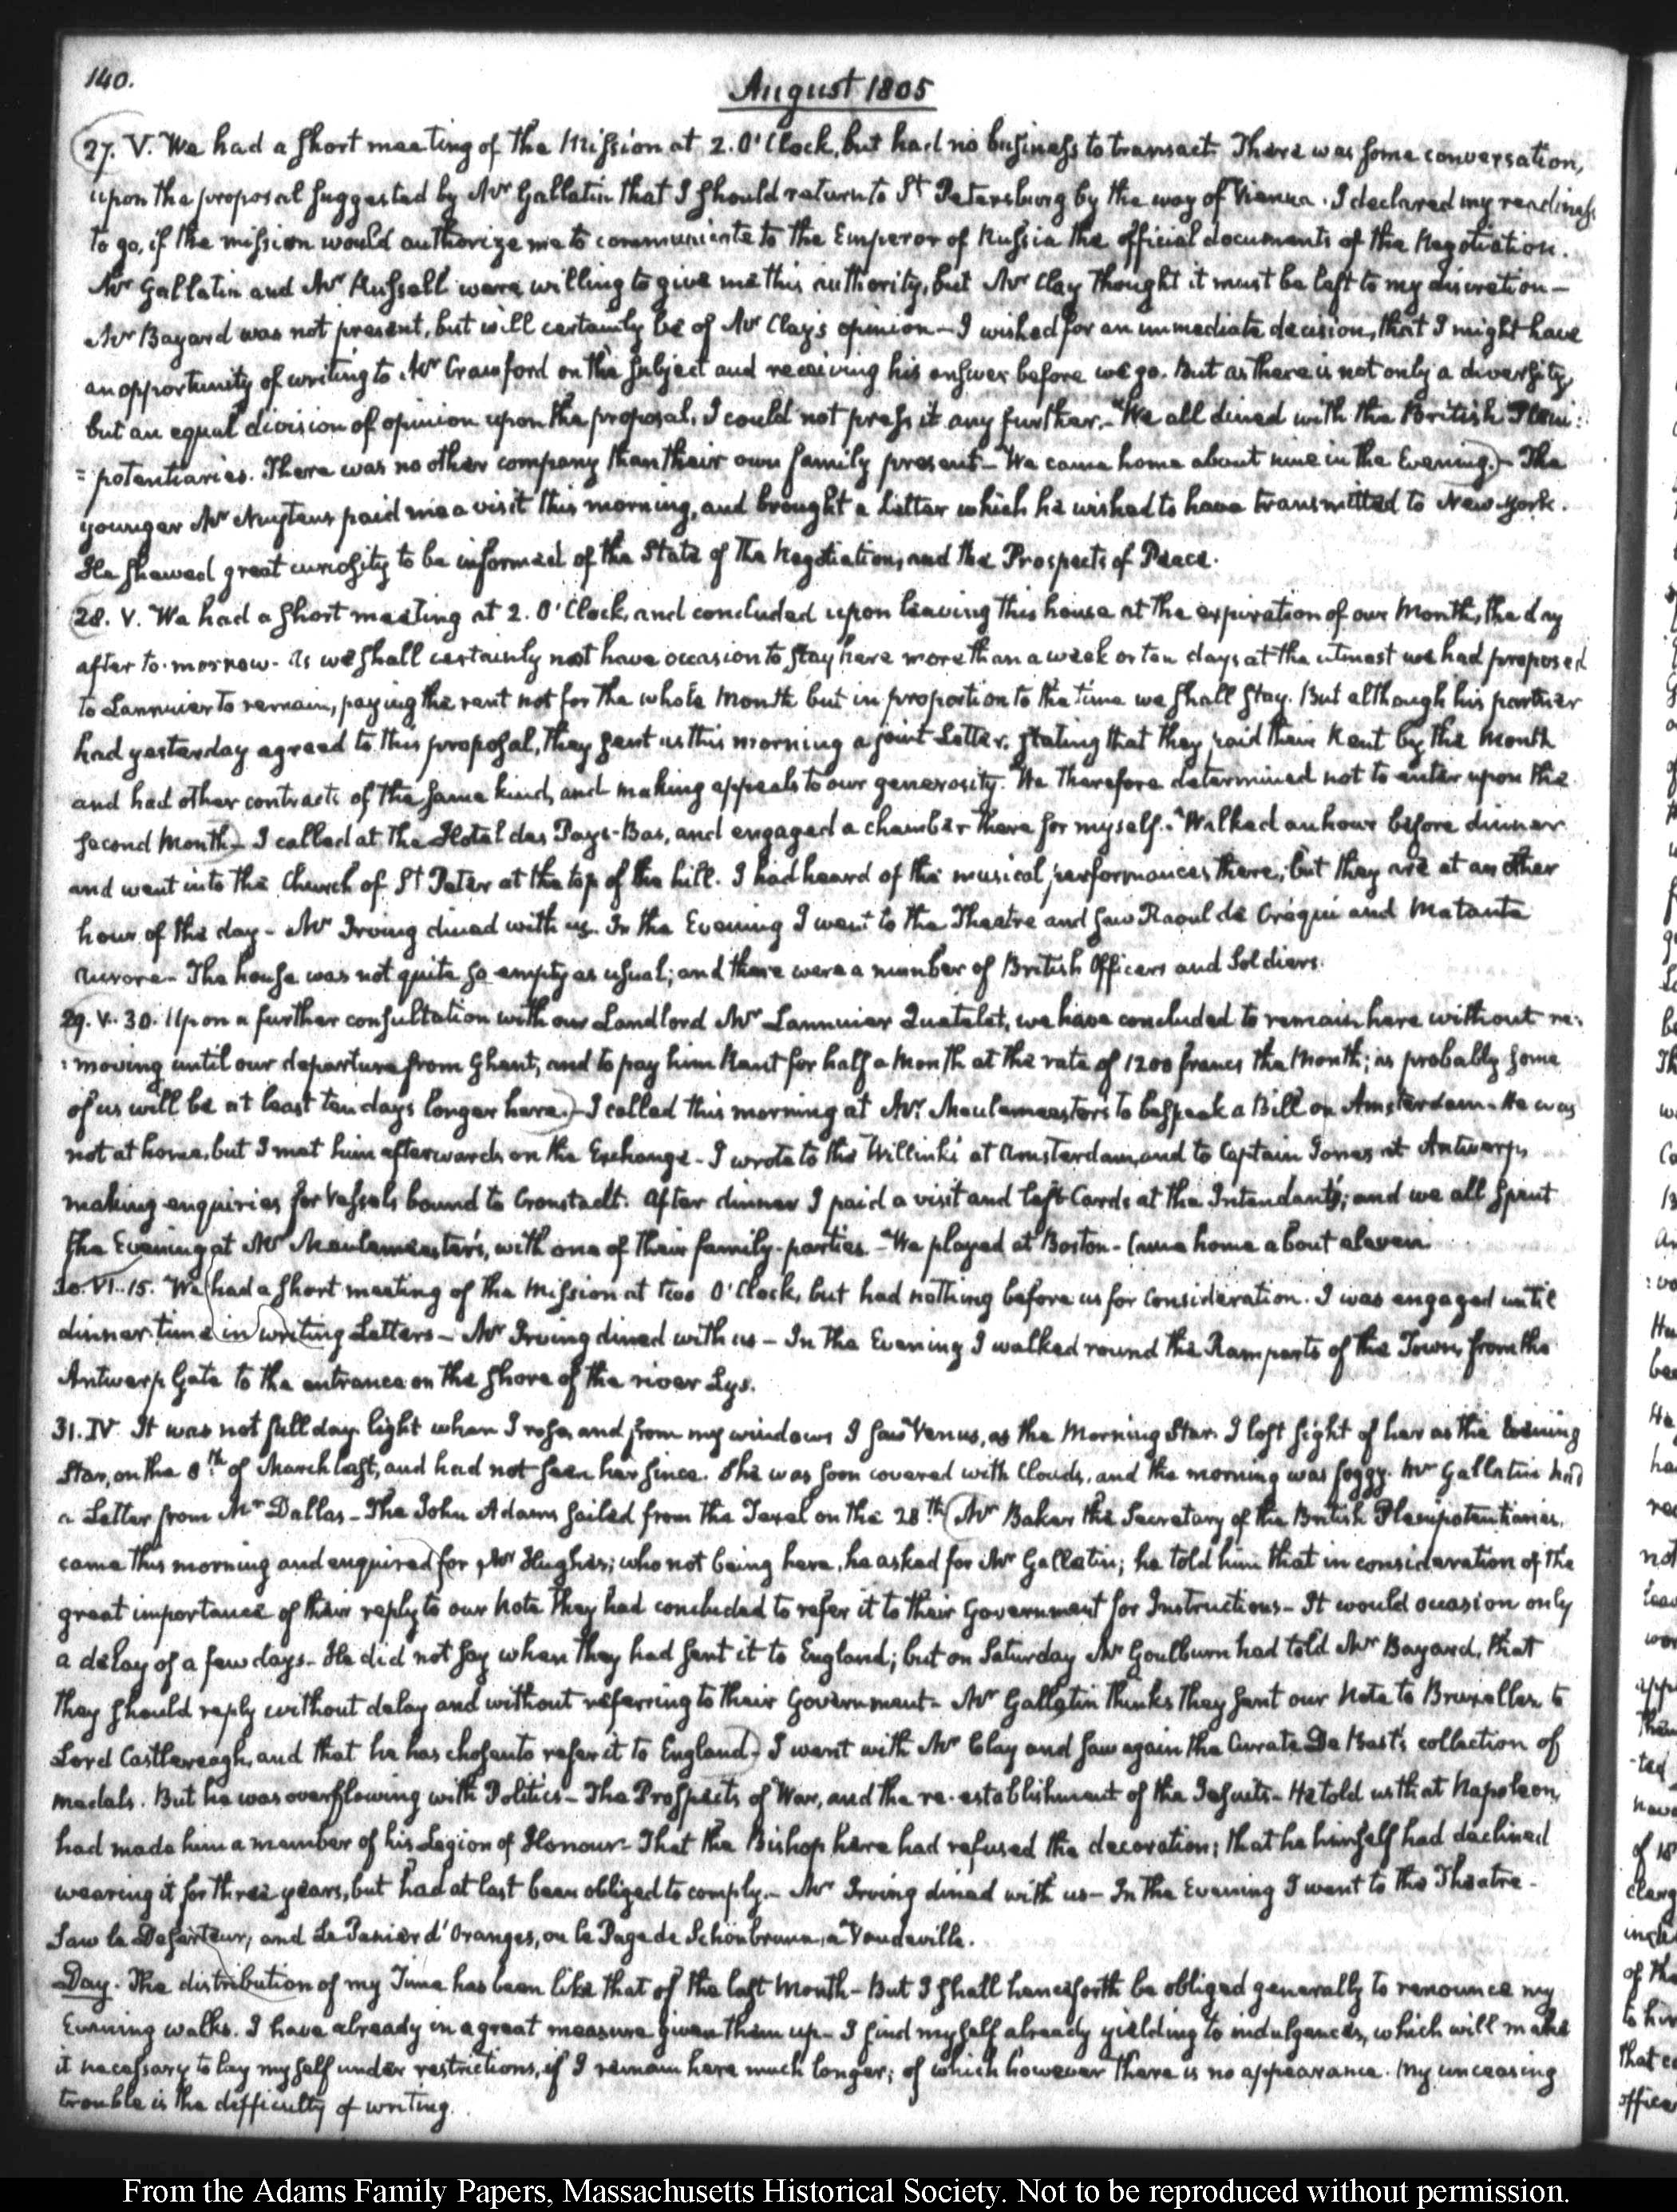 140.
August 1805
27. V. We had a short meeting of the Mission at 2. O'Clock, but had no business to transact. There was some conversation,
upon the proposal suggested by Mr Gallatin that I should return to St Petersburg by the way of Vienna. I declared my readiness
to go, if the mission would authorize me to communicate to the Emperor of Russia the official documents of the Negotiation.
Mr Gallatin and Mr Russell were willing to give me this authority, but Mr Clay thought it must be left to my discretion—
Mr Bayard was not present, but will certainly be of Mr Clay's opinion— I wished for an immediate decision, that I might have
an opportunity of writing to Mr Crawford on the subject and receiving his answer before we go. But as there is not only a diversity,
but an equal division of opinion upon the proposal, I could not press it any further.— We all dined with the British Pleni:
=potentiaries. There was no other company than their own family present— We came home about nine in the Evening.)— The
younger Mr Nuytens paid me a visit this morning, and brought a Letter which he wished to have transmitted to New-York.
He shewed great curiosity to be informed of the State of the Negotiation, and the Prospects of Peace.
28. V. We had a short meeting at 2. O'Clock, and concluded upon leaving this house at the expiration of our Month, the day
after to-morrow. As we shall certainly not have occasion to stay here more than a week or ten days at the utmost we had proposed
to Lannuier to remain, paying the rent not for the whole Month but in proportion to the time we shall stay. But although his partner
had yesterday agreed to this proposal, they sent us this morning a joint Letter, stating that they paid their Rent by the Month
and had other contracts of the same kind, and making appeals to our generosity. We therefore determined not to enter upon the
second Month)— I called at the Hotel des Pays-Bas, and engaged a chamber there for myself.— Walked an hour before dinner
and went into the Church of St Peter at the top of the hill. I had heard of the musical performances there; but they are at another
hour of the day— Mr Irving dined with us. In the Evening I went to the Theatre and saw Raoul de Créqui and Ma tante
Aurore— The house was not quite so empty as usual; and there were a number of British Officers and Soldiers.
29. V. 30. Upon a further consultation with our Landlord Mr Lannuier Quetelet, we have concluded to remain here without re:
:moving until our departure from Ghent, and to pay him Rent for half a Month at the rate of 1200 francs the Month; as probably some
of us will be at least ten days longer here.)— I called this morning at Mr. Meulemeester's to bespeak a Bill on Amsterdam— He was
not at home, but I met him afterwards on the Exchange— I wrote to the Willinks at Amsterdam, and to Captain Jones at Antwerp,
making enquiries for Vessels bound to Cronstadt. After dinner I paid a visit and left Cards at the Intendant's; and we all spent
the Evening at Mr Meulemeester's, with one of their family-parties— We played at Boston— Came home about eleven.
30. VI. 15. We had a short meeting of the Mission at two O'Clock, but had nothing before us for consideration. I was engaged until
dinner time in writing Letters— Mr Irving dined with us— In the Evening I walked round the Ramparts of the Town, from the
Antwerp Gate to the entrance on the shore of the river Lys.
31. IV. It was not full day-light when I rose, and from my windows I saw Venus, as the Morning Star. I lost sight of her as the Evening
Star, on the 8th of March last, and had not seen her since. She was soon covered with Clouds, and the morning was foggy. Mr Gallatin had
a Letter from Mr Dallas— The John Adams sailed from the Texel on the 28th (Mr Baker the Secretary of the British Plenipotentiaries,
came this morning and enquired for Mr Hughes; who not being here, he asked for Mr Gallatin; he told him that in consideration of the
great importance of their reply to our Note they had concluded to refer it to their Government for Instructions— It would occasion only
a delay of a few days— He did not say when they had sent it to England; but on Saturday Mr Goulburn had told Mr Bayard, that
they should reply without delay and without referring to their Government— Mr Gallatin thinks they sent our Note to Bruxelles to
Lord Castlereagh, and that he has chosen to refer it to England.) I went with Mr Clay and saw again the Curate De Bast's collection of
medals. But he was overflowing with Politics— The Prospects of War, and the re-establishment of the Jesuits— He told us that Napoleon,
had made him a member of his Legion of Honour— That the Bishop here had refused the decoration; that he himself had declined
wearing it for three years, but had at last been obliged to comply.— Mr Irving dined with us— In the Evening I went to the Theatre—
Saw le Deserteur, and Le Panier d'Oranges, ou le Page de Schönbrunn, a Vaudeville.
Day. The distribution of my Time has been like that of the last Month— But I shall henceforth be obliged generally to renounce my
Evening walks. I have already in a great measure given them up— I find myself already yielding to indulgences, which will make
it necessary to lay myself under restrictions, if I remain here much longer; of which however there is no appearance. My unceasing
trouble is the difficulty of writing.
From the Adams Family Papers, Massachusetts Historical Society. Not to be reproduced without permission.